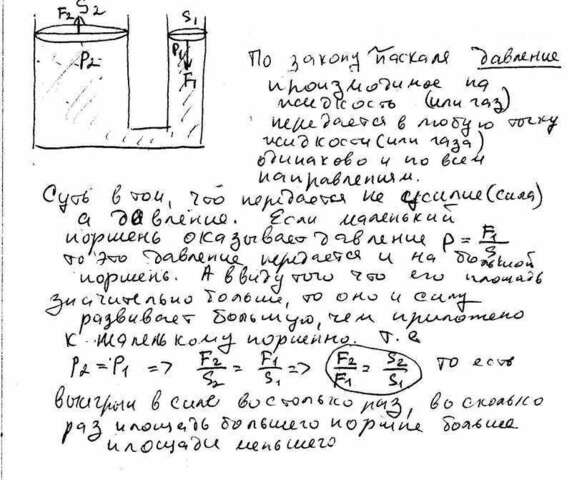 F2 S2 S1
P2 P1
F1
По закону Паскаля давление
производимое на
жидкость (или газ)
передается в любую точку
жидкости (или газа)
одинаково и по всем
направлениям.
Суть в том, что передается не усилие (сила)
а давление. Если маленький
поршень оказывает давление P = F1/S1
то это давление передается и на большой
поршень. А ввиду того что его площадь
значительно больше, то оно и силу
развивает большую, чем приложено
к маленькому поршню. т.е
P2 = P1 => F2/S2 = F1/S1 => F2/F1 = S2/S1 то есть
выигрыш в силе во столько раз, во сколько
раз площадь большего поршне больше
площади меньшего